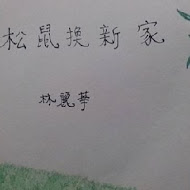 松鼠換新家
林麗華